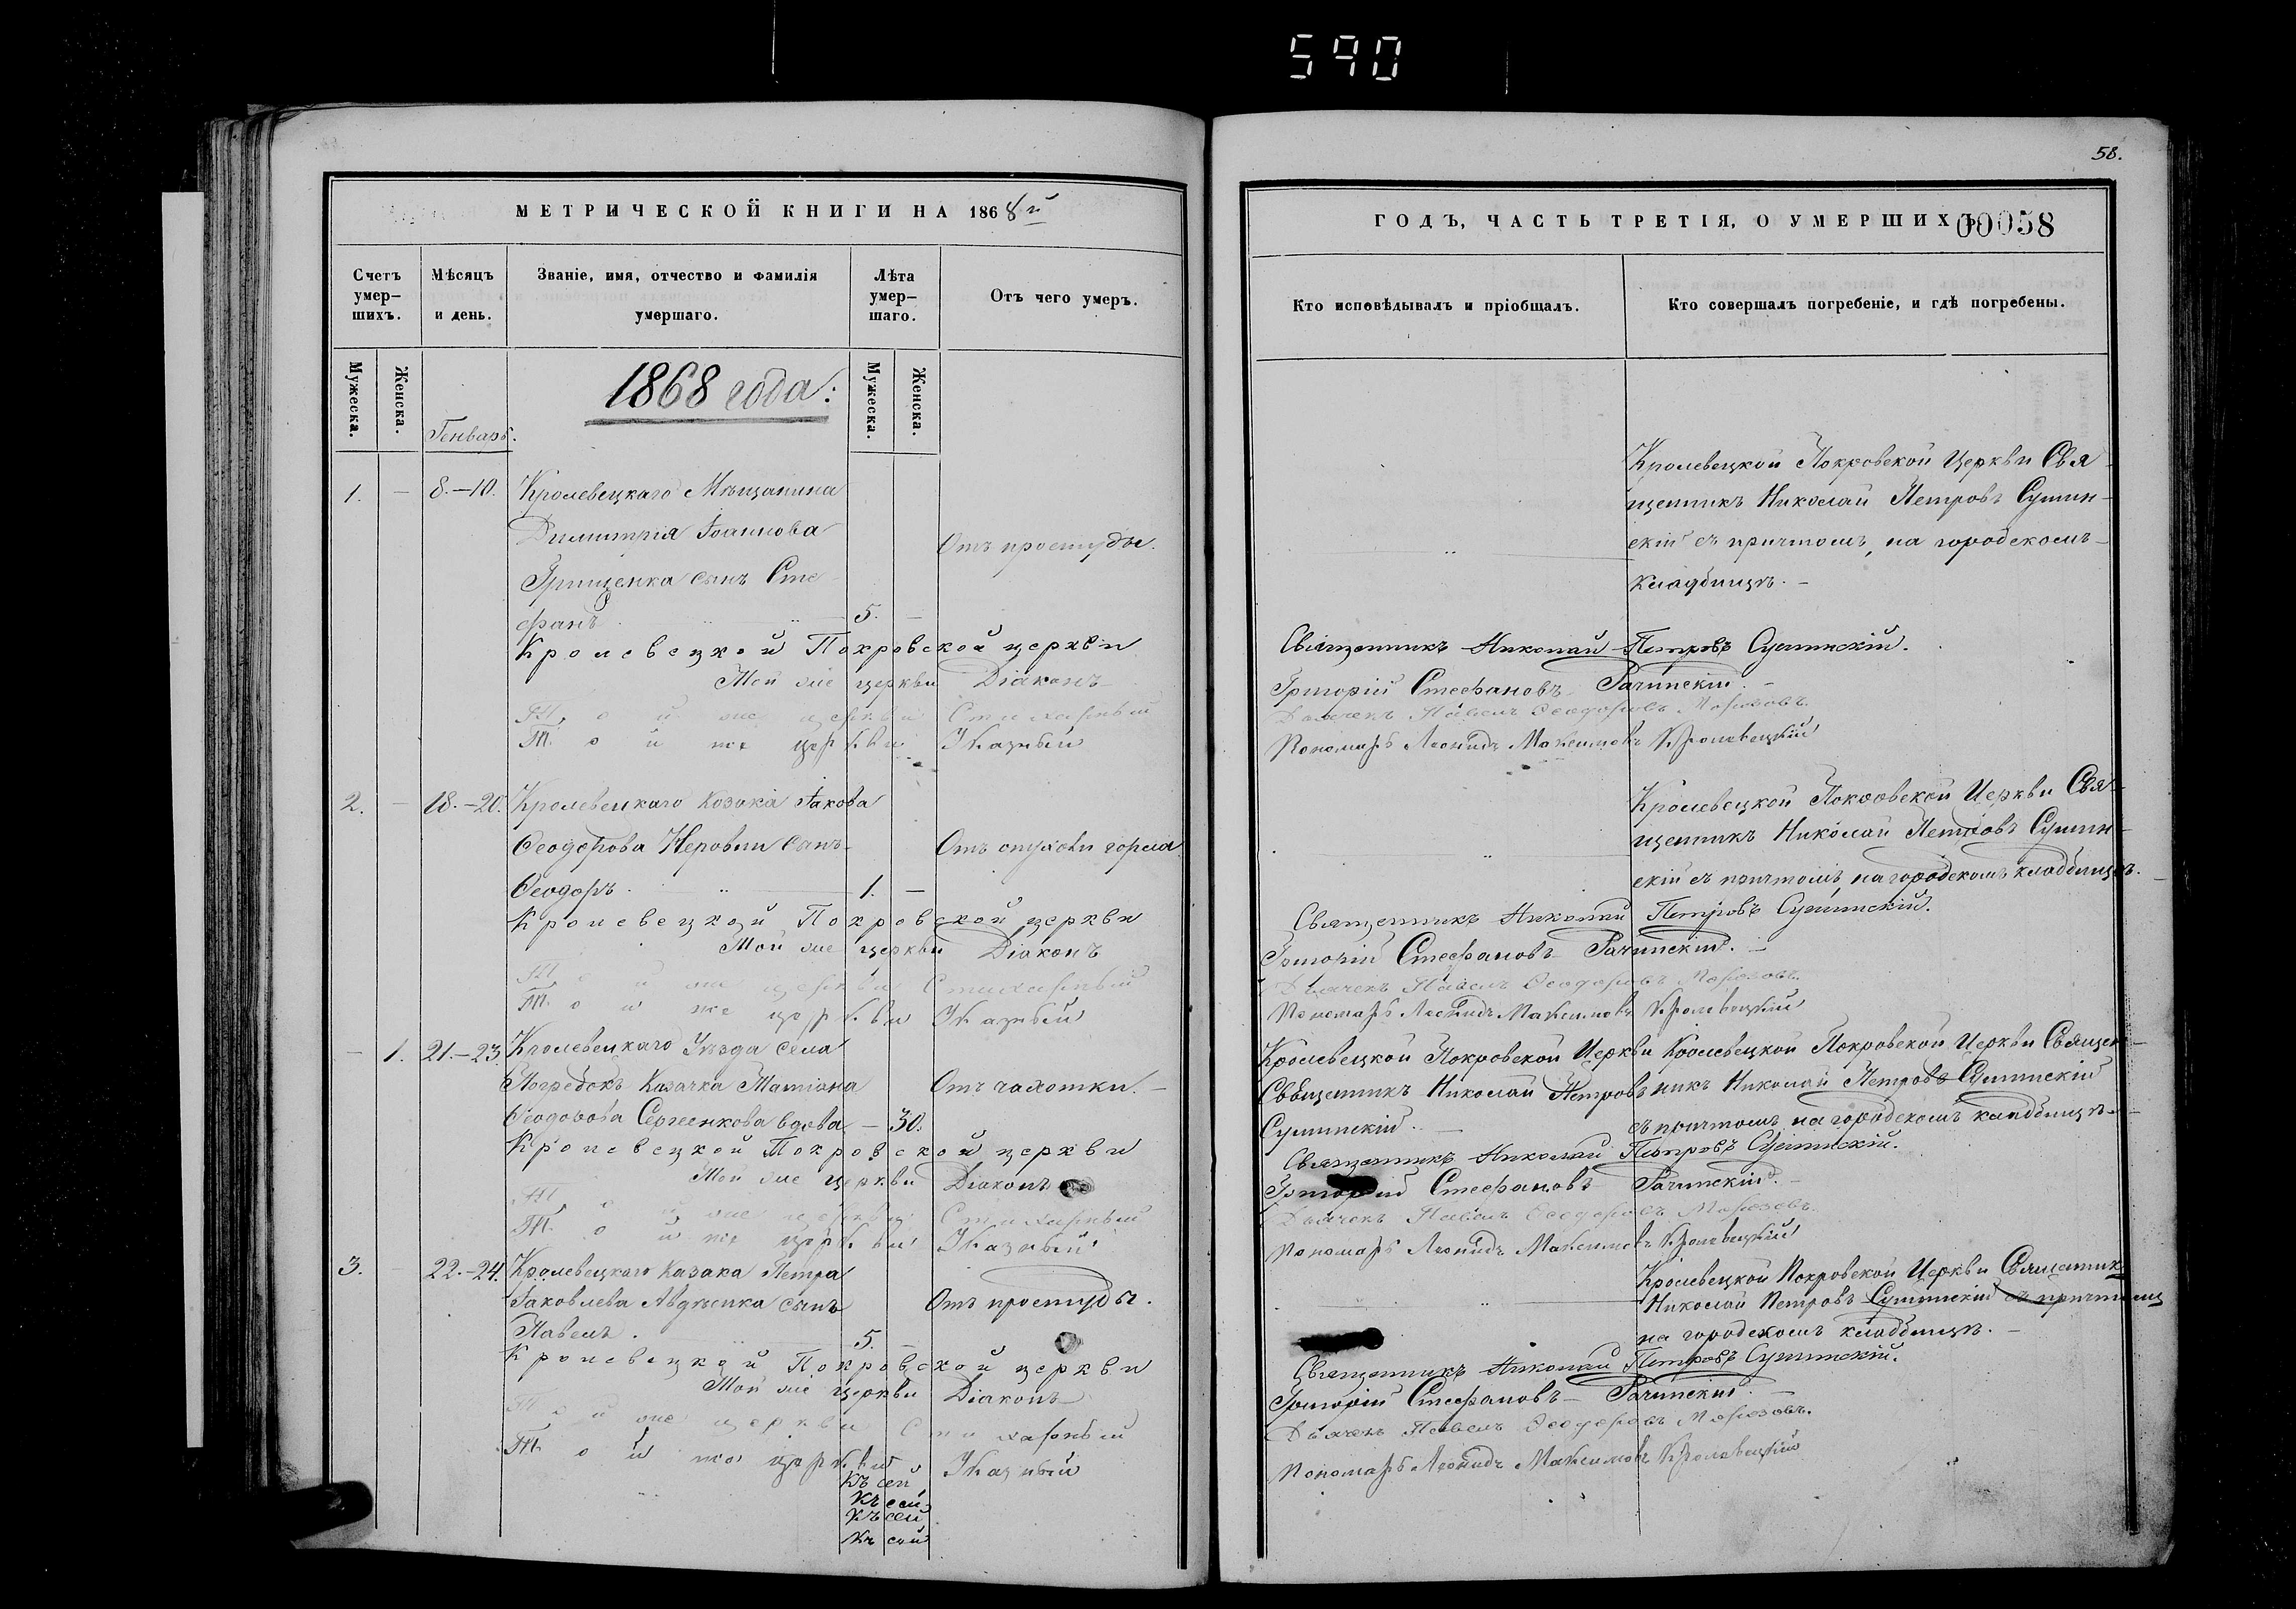 590
58.
МЕТРИЧЕСКОЙ КНИГИ НА 1868й
ГОДЪ, ЧАСТЬ ТРЕТІЯ, О УМЕРШИХЪ
00058
Счетъ умер-шихъ.
Мѣсяцъ и день.
Званіе, имя, отчество и фамилія умершаго.
Лѣта умер-шаго.
Отъ чего умеръ.
Кто исповѣдывалъ и пріобщалъ.
Кто совершалъ погребеніе, и гдѣ погребены.
Мужеска.
Женска.
Мужеска.
Женска.
Генварь.
1868 года:
1. — 8.–10. Кролевецкаго Мѣщанина
Димитрія Іоаннова
Грищенка сынъ Сте-
фанъ 5. —
Отъ простуды.
Кролевецкой Покровской Церкви Свя-
щенникъ Николай Петровъ
скій съ причтомъ, на городскомъ
кладбищѣ.—
Кролевецкой Покровской церкви Священникъ Николай Петровъ
Той же церкви Діаконъ Григорій Стефановъ
Той же церкви Стихарный Дьячекъ Павелъ Ѳеодоровъ Морозовъ.
Той же церкви Указный Пономарь Леонидъ Максимовъ Кролевецкій
2. — 18.–20. Кролевецкаго Козака Іакова
Ѳеодорова сынъ
Ѳеодоръ 1. —
Отъ опухоли горла
Кролевецкой Покровской Церкви Свя-
щенникъ Николай Петровъ
скій съ причтомъ, на городскомъ кладбищѣ.
Кролевецкой Покровской церкви Священникъ Николай Петровъ
Той же церкви Діаконъ Григорій Стефановъ
Той же церкви Стихарный Дьячекъ Павелъ Ѳеодоровъ Морозовъ.
Той же церкви Указный Пономарь Леонидъ Максимовъ Кролевецкій
— 1. 21.–23. Кролевецкаго Уѣзда села
Погребокъ Казачка Татіана
Ѳеодорова Сергеенкова вдова — 30.
Отъ чахотки.—
Кролевецкой Покровской Церкви
Священникъ Николай Петровъ
Кролевецкой Покровской Церкви Священ-
никъ Николай Петровъ
съ причтомъ на городскомъ кладбищѣ.—
Кролевецкой Покровской церкви Священникъ Николай Петровъ
Той же церкви Діаконъ Григорій Стефановъ
Той же церкви Стихарный Дьячекъ Павелъ Ѳеодоровъ Морозовъ.
Той же церкви Указный Пономарь Леонидъ Максимовъ Кролевецкій
3. — 22.–24. Кролевецкаго Казака Петра
Іаковлева Авдѣенка сынъ
Павелъ. 5. —
Отъ простуды.
Кролевецкой Покровской Церкви Священник
Николай Петровъ съ причтомъ
на городскомъ кладбищѣ.—
Кролевецкой Покровской церкви Священникъ Николай Петровъ
Той же церкви Діаконъ Григорій Стефановъ
Той же церкви Стихарный Дьячекъ Павелъ Ѳеодоровъ Морозовъ.
Той же церкви Указный Пономарь Леонидъ Максимовъ Кролевецкій
Къ сей
Къ сей
Къ сей
Къ сей